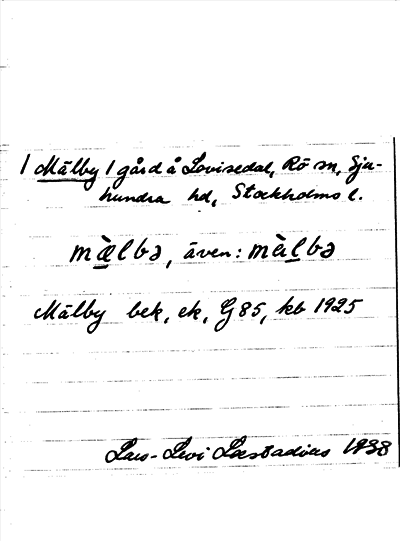 1 Mälby 1 gård å Lovisedal, Rö sn, Sju-
hundra hd, Stockholms l.
mæ̀lbə, även: màlbə
Mälby bek, ek, G85, kb 1925
Lars-Levi Læstadius 1938